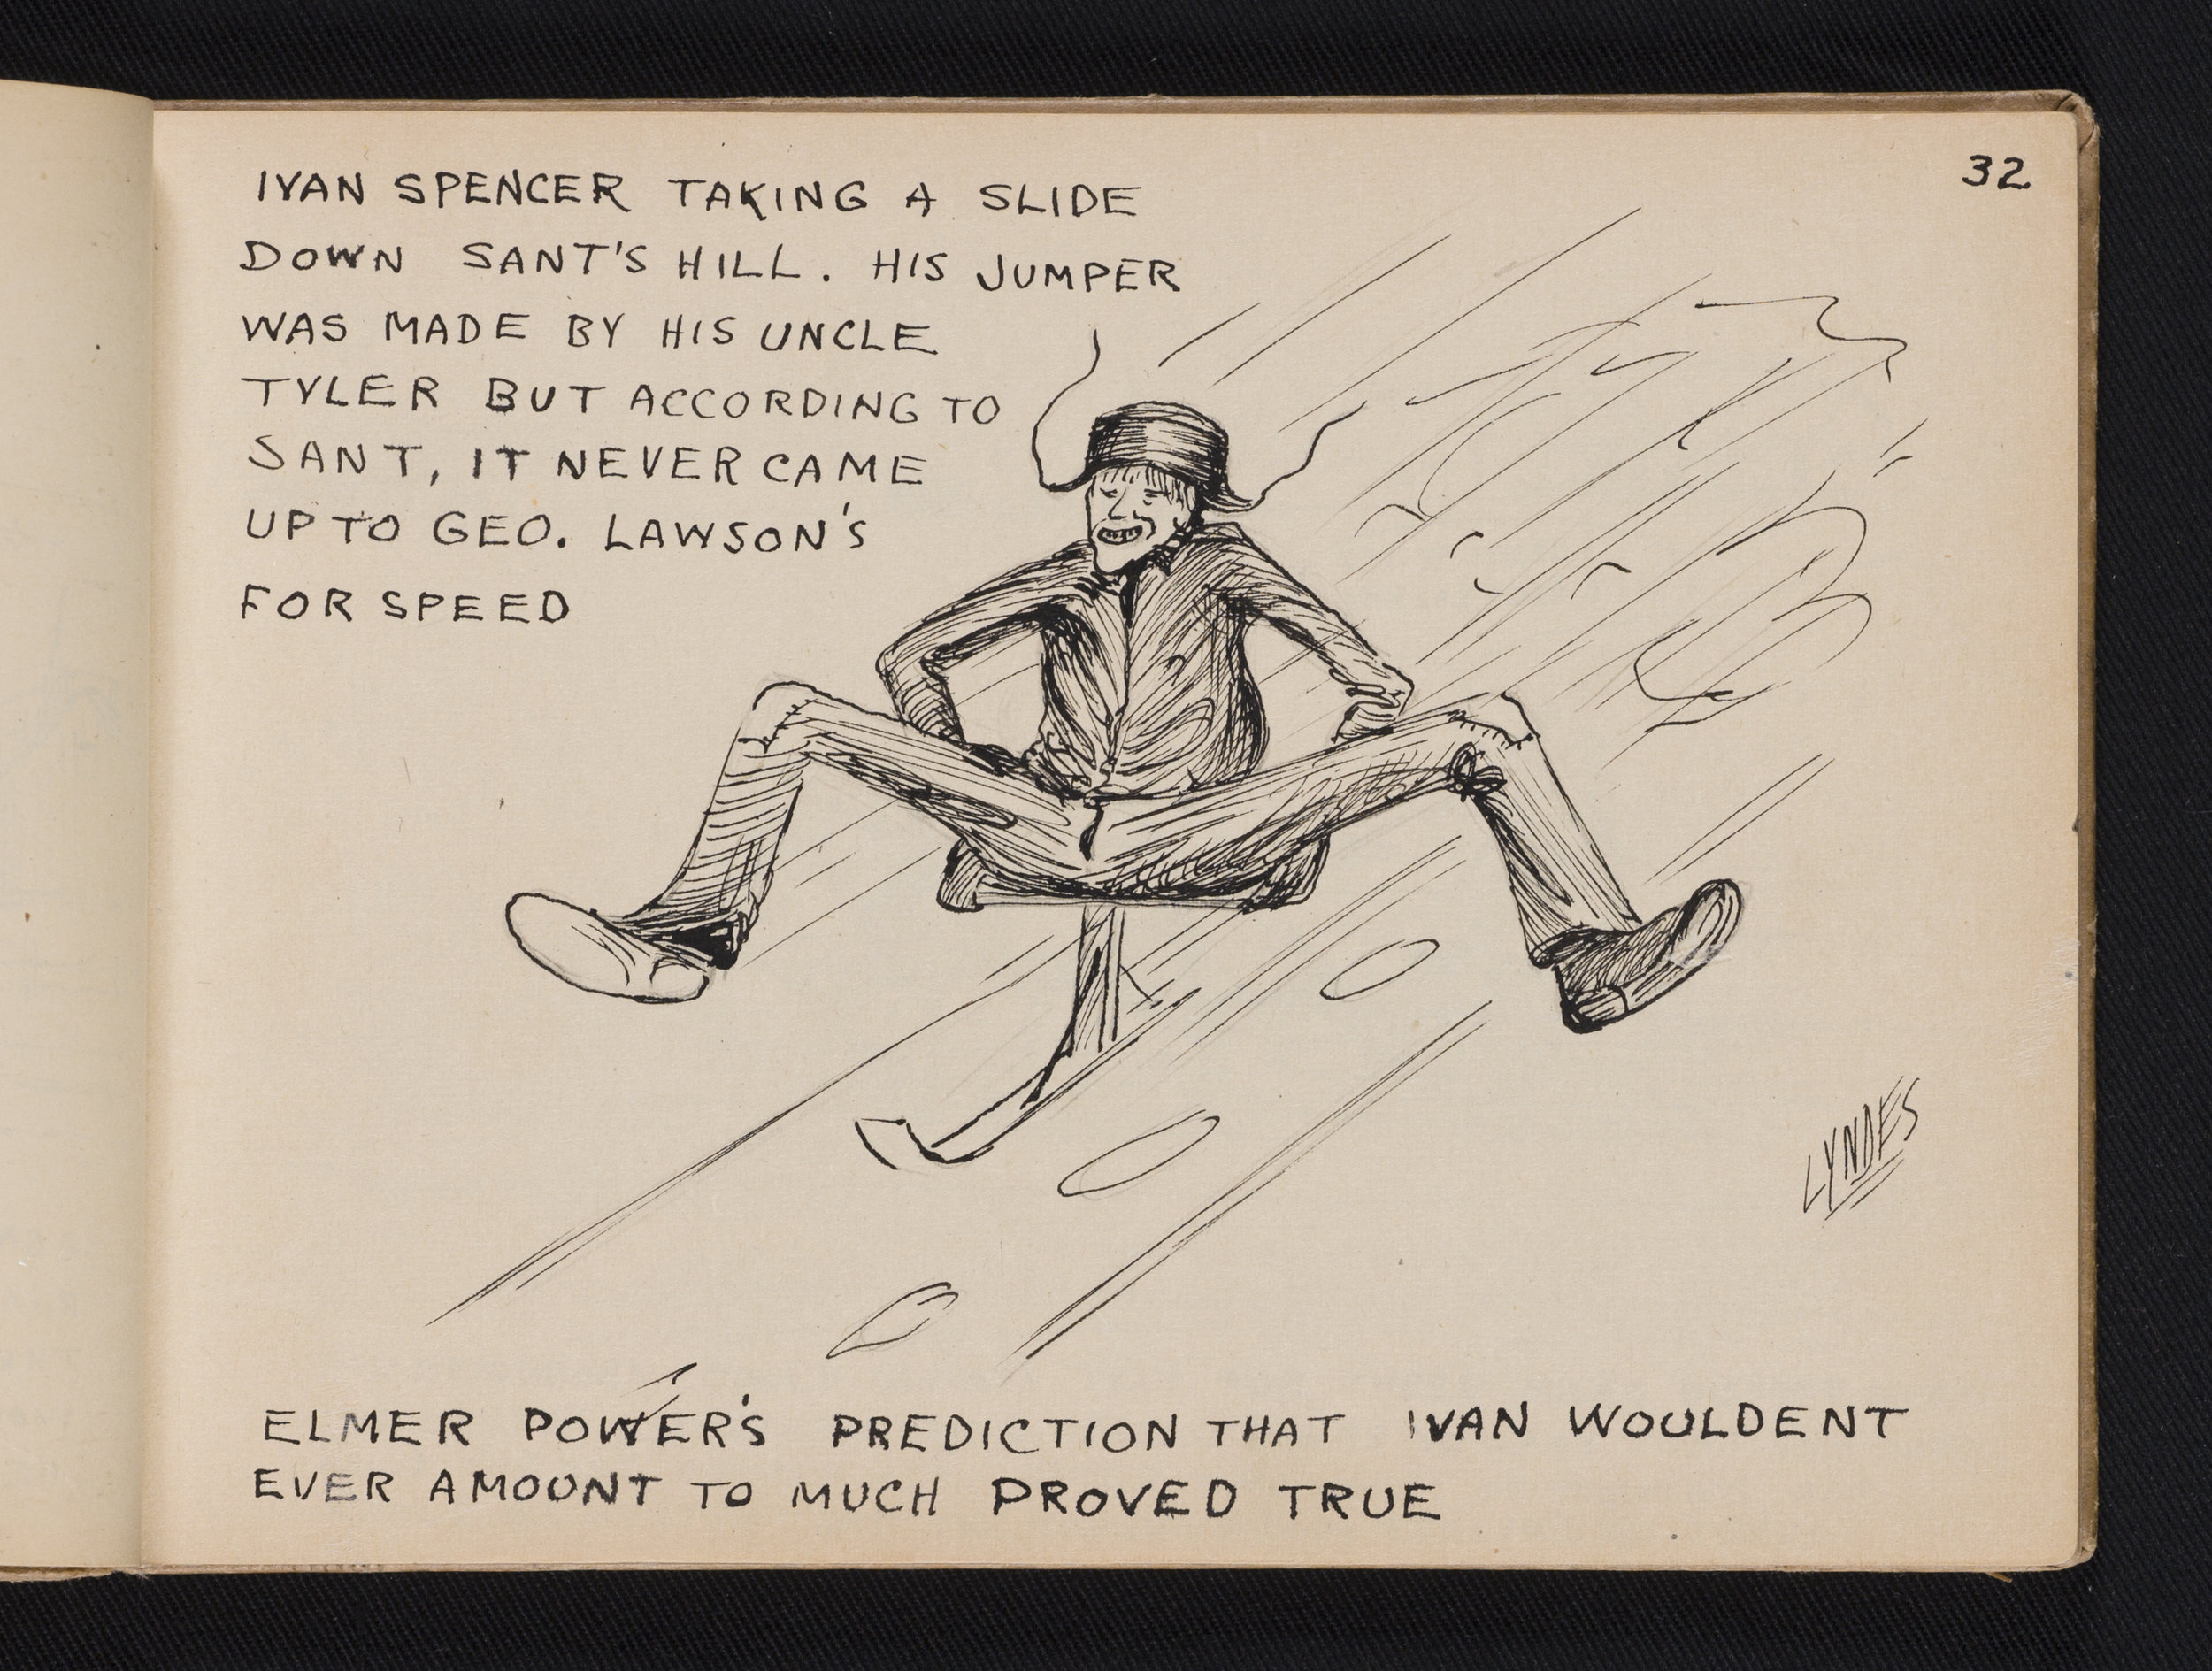 32
IVAN SPENCER TAKING A SLIDE
DOWN SANT'S HILL. HIS JUMPER
WAS MADE BY HIS UNCLE
TYLER BUT ACCORDING TO
SANT, IT NEVER CAME
UP TO GEO. LAWSON'S
FOR SPEED
LYNDES
ELMER POWER'S PREDICTION THAT IVAN WOULDENT
EVER AMOUNT TO MUCH PROVED TRUE